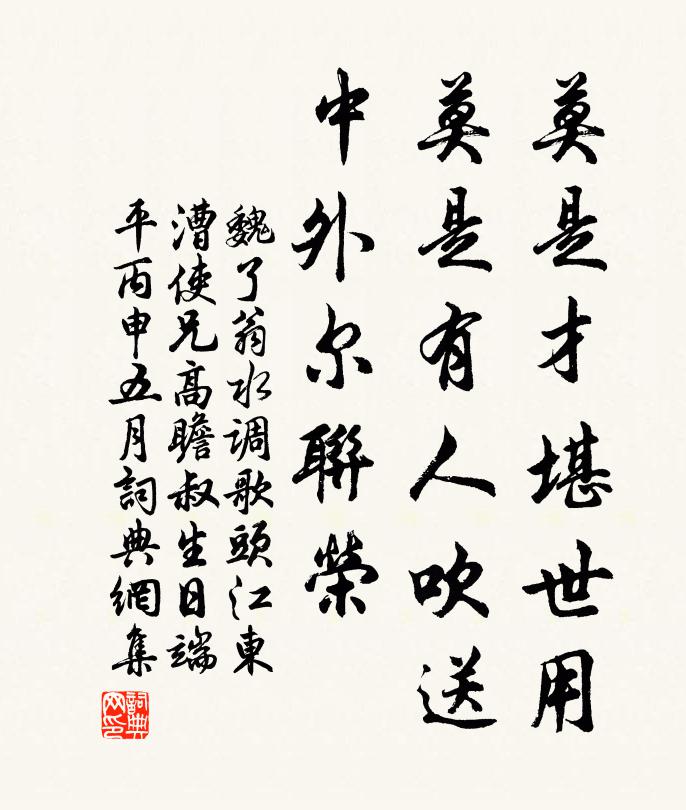 莫是才堪世用
莫是有人吹送
中外尔聯榮
魏了翁水调歌頭江東
漕使兄高瞻叔生日端
平丙申五月詞典網集
詞典网印